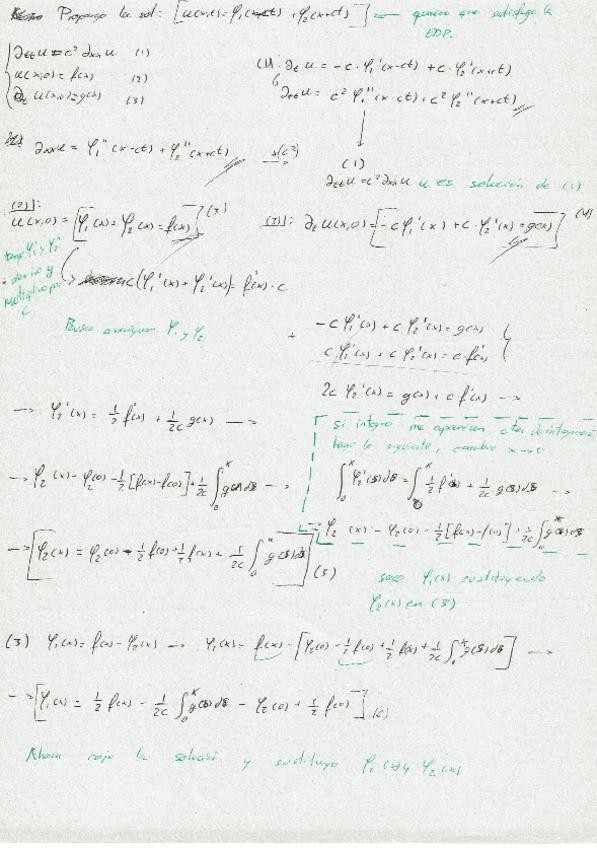 Propongo la sol: [u(x,t) = φ₁(x-ct) + φ₂(x+ct)] ← quiero que satisfaga la EDP.
∂ttu = c² ∂xxu (1)
u(x,0) = f(x) (2)
∂tu(x,0) = g(x) (3)
(1): ∂tu = -c·φ₁'(x-ct) + c·φ₂'(x+ct)
∂ttu = c² φ₁''(x-ct) + c² φ₂''(x+ct)
∂xxu = φ₁''(x-ct) + φ₂''(x+ct) x(c²)
(1)
∂ttu = c² ∂xxu u es solución de (1)
(2)]:
u(x,0) = [φ₁(x) + φ₂(x) = f(x)] (3)
(3)]: ∂tu(x,0) = [-c φ₁'(x) + c·φ₂'(x) = g(x)] (4)
tengo φ₁' y φ₂'
derivo y
multiplico por
c
c(φ₁'(x) + φ₂'(x)) = f'(x)·c
Busco averiguar φ₁ y φ₂
+ -c φ₁'(x) + c φ₂'(x) = g(x)
c φ₁'(x) + c φ₂'(x) = c·f'(x)
2c φ₂'(x) = g(x) + c f'(x) →
→ φ₂'(x) = 1/2 f'(x) + 1/2c g(x) →
si integro me aparecen ctes de integración
hago lo siguiente, cambio x →
→ φ₂(x) - φ₂(0) = 1/2 [f(x) - f(0)] + 1/2c ∫₀ˣ g(s)ds →
∫₀ˣ φ₂'(s)ds = ∫₀ˣ 1/2 f'(s) + 1/2c g(s)ds →
→ φ₂(x) - φ₂(0) = 1/2 [f(x) - f(0)] + 1/2c ∫₀ˣ g(s)ds
→ [φ₂(x) = φ₂(0) - 1/2 f(0) + 1/2 f(x) + 1/2c ∫₀ˣ g(s)ds] (5)
saco φ₁(x) sustituyendo
φ₂(x) en (3)
(3) φ₁(x) = f(x) - φ₂(x) → φ₁(x) = f(x) - [φ₂(0) - 1/2 f(0) + 1/2 f(x) + 1/2c ∫₀ˣ g(s)ds] →
→ [φ₁(x) = 1/2 f(x) - 1/2c ∫₀ˣ g(s)ds - φ₂(0) + 1/2 f(0)] (6)
Ahora cojo la solución y sustituyo φ₁(x) y φ₂(x)